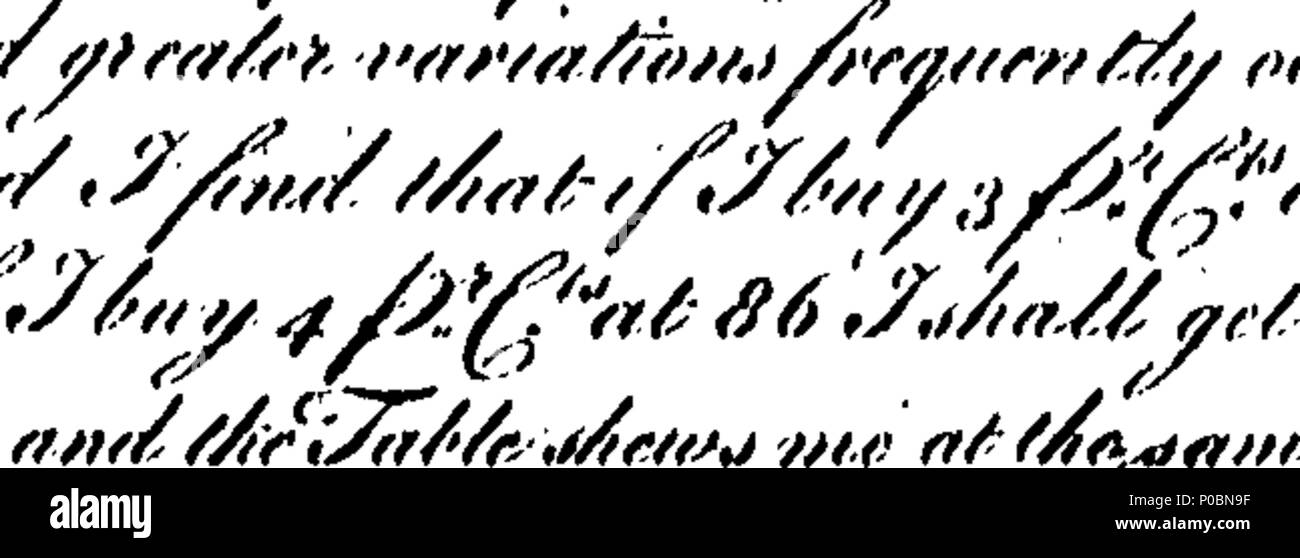 greater variations frequently
I find that if I buy 3 Pr. Cts
I buy 4 Pr. Cts at 86 I shall get
and the Table shews me at the sam
alamy
Image ID: P0BN9F
www.alamy.com